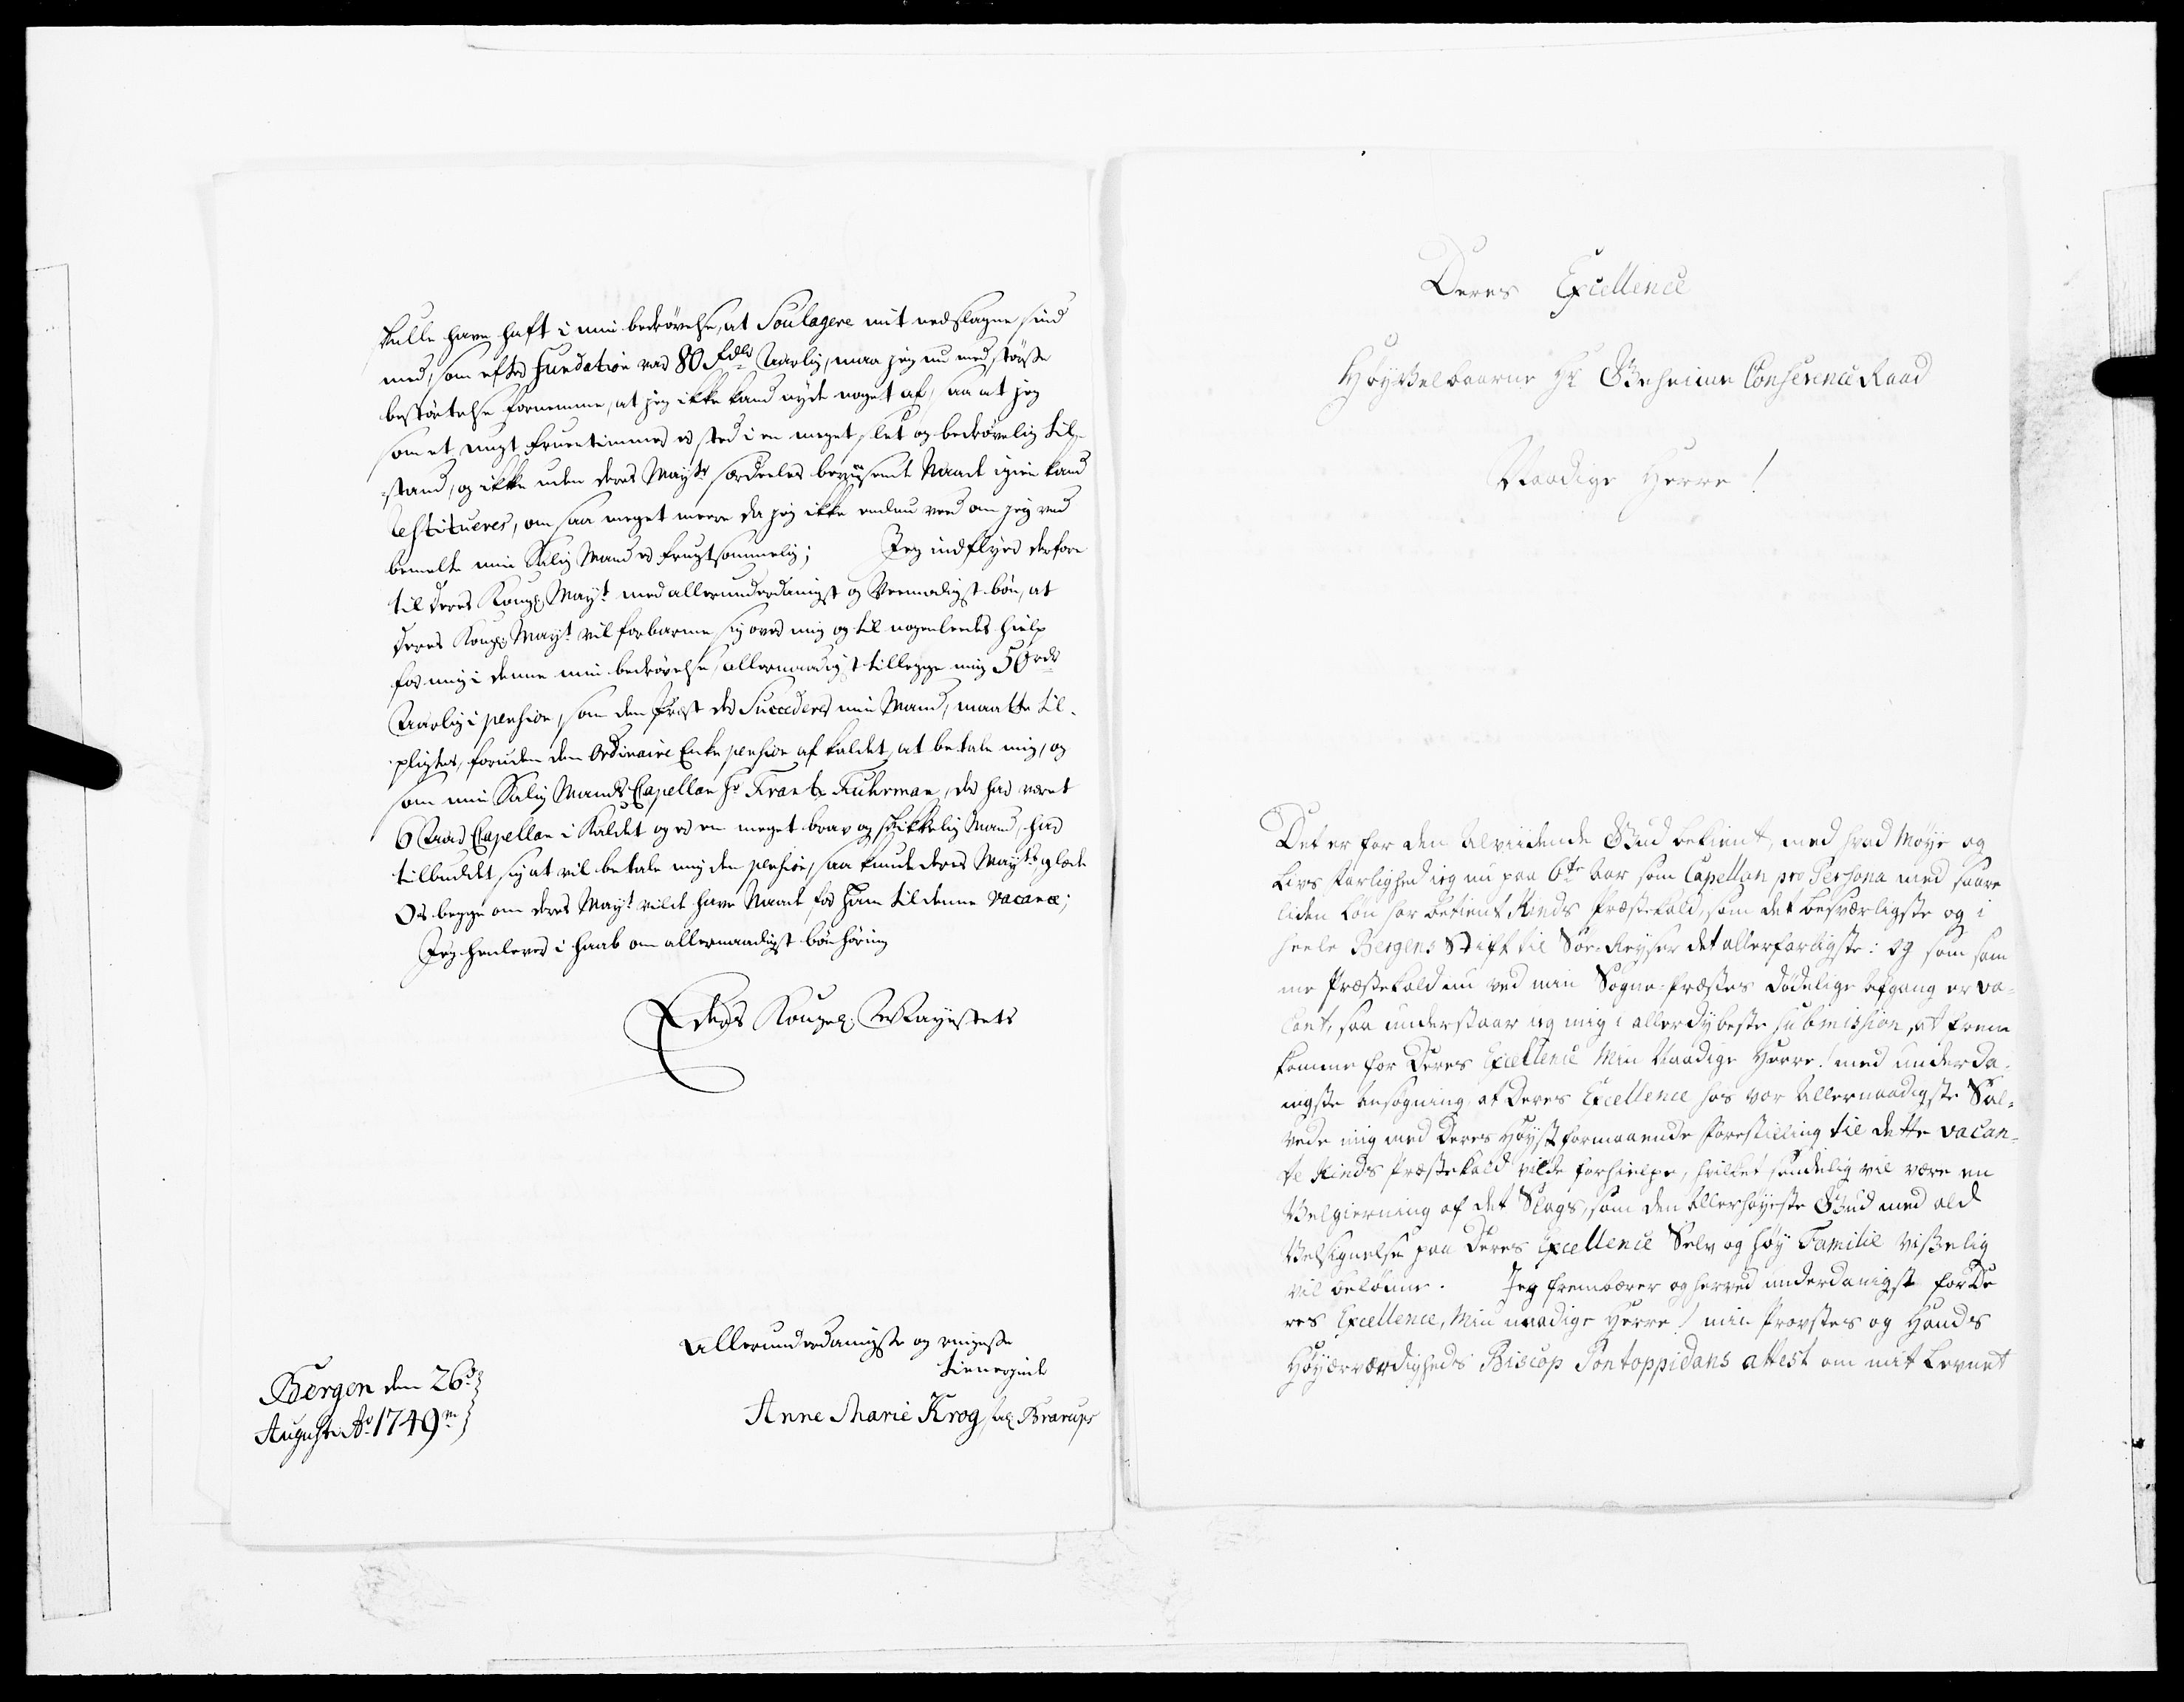 skulle have haft i min bedrøvelse, at Soulagere mit nedslagne sind
med, som efter Fundation var 80 Rdlr Aarlig, maa jeg nu med største
bestörtelse fornemme, at jeg ikke kand nyde noget af, saa at jeg
som et ungt Fruentimmer er sted i en meget slet og bedrøvelig til¬
stand, og ikke uden deres Mayts serdeeles beviisende Naade igien kand
restitueres, om saa meget meere da jeg ikke endnu veed om jeg ved
bemelte min Salig Mand er frugtsommelig; Jeg indflyer derfore
til deres Kongl: Mayt med allerunderdanigst og Veemodigst bön, at
deres Kongl: Mayt vil forbarme sig over mig og til nogenleedes hielp
for mig i denne min bedrøvelse allernaadigst tillegge mig 50 rdr
Aarlig i pension, som den Præst der Succederer min Mand, maatte til¬
pligtes, foruden den Ordinaire Enke pension af kaldet at betale mig, og
som min Salig Mands Capellan hr Frantz Fuhrman, der har veret
6 Aar Capellan i Kaldet og er en meget brav og skikkelig Mand, har
tilbuddet sig at vil betale mig den pension, saa kunde deres Mayt glæde
Os begge om deres Mayt vilde have Naade for ham til denne vacance;
Jeg henlever i haab om allernaadigst bönhøring
Eders Kongel: Mayestets
Allerunderdanigste og ringeste
tienerinde
Anne Marie Krog, sal: Brarups
Bergen den 26de
Augusti Ao 1749
Deres Excellence
HöyVelbaarne Hr Geheime Conference Raad
Naadige Herre!
Det er for den Alviidende Gud bekient, med hvad Møye og
Livs farlighed ieg nu paa 6te Aar som Capellan pro Persona med saare
liden Løn har betient Kinds Præstekald, som det besværligste og i
heele Bergens Stift til Söe-Reyser det allerfarligste: og som sam
me Præstekald nu ved min Sogne-Præstes dödelige afgang er va¬
cant, saa understaar ieg mig i allerdybeste submission, at frem
komme for Deres Excellence Min Naadige Herre! med underda¬
nigste Ansøgning, at Deres Excellence hos vor Allernaadigste Sal¬
vede mig med Deres Höyst formaaende Forestilling til dette vacan¬
te Kinds Præstekald vilde forhielpe, hvilket sandelig vil være en
Velgierning af det Slags, som den Allerhøyeste Gud med ald
Velsignelse paa Deres Excellence Selv og høy Familie visselig
vil belönne. Jeg frembærer og herved underdanigst for De
res Excellence, Min naadige Herre! min Provstes og Hands
Höyærværdigheds Biscop Pontoppidans attest om mit Levnet